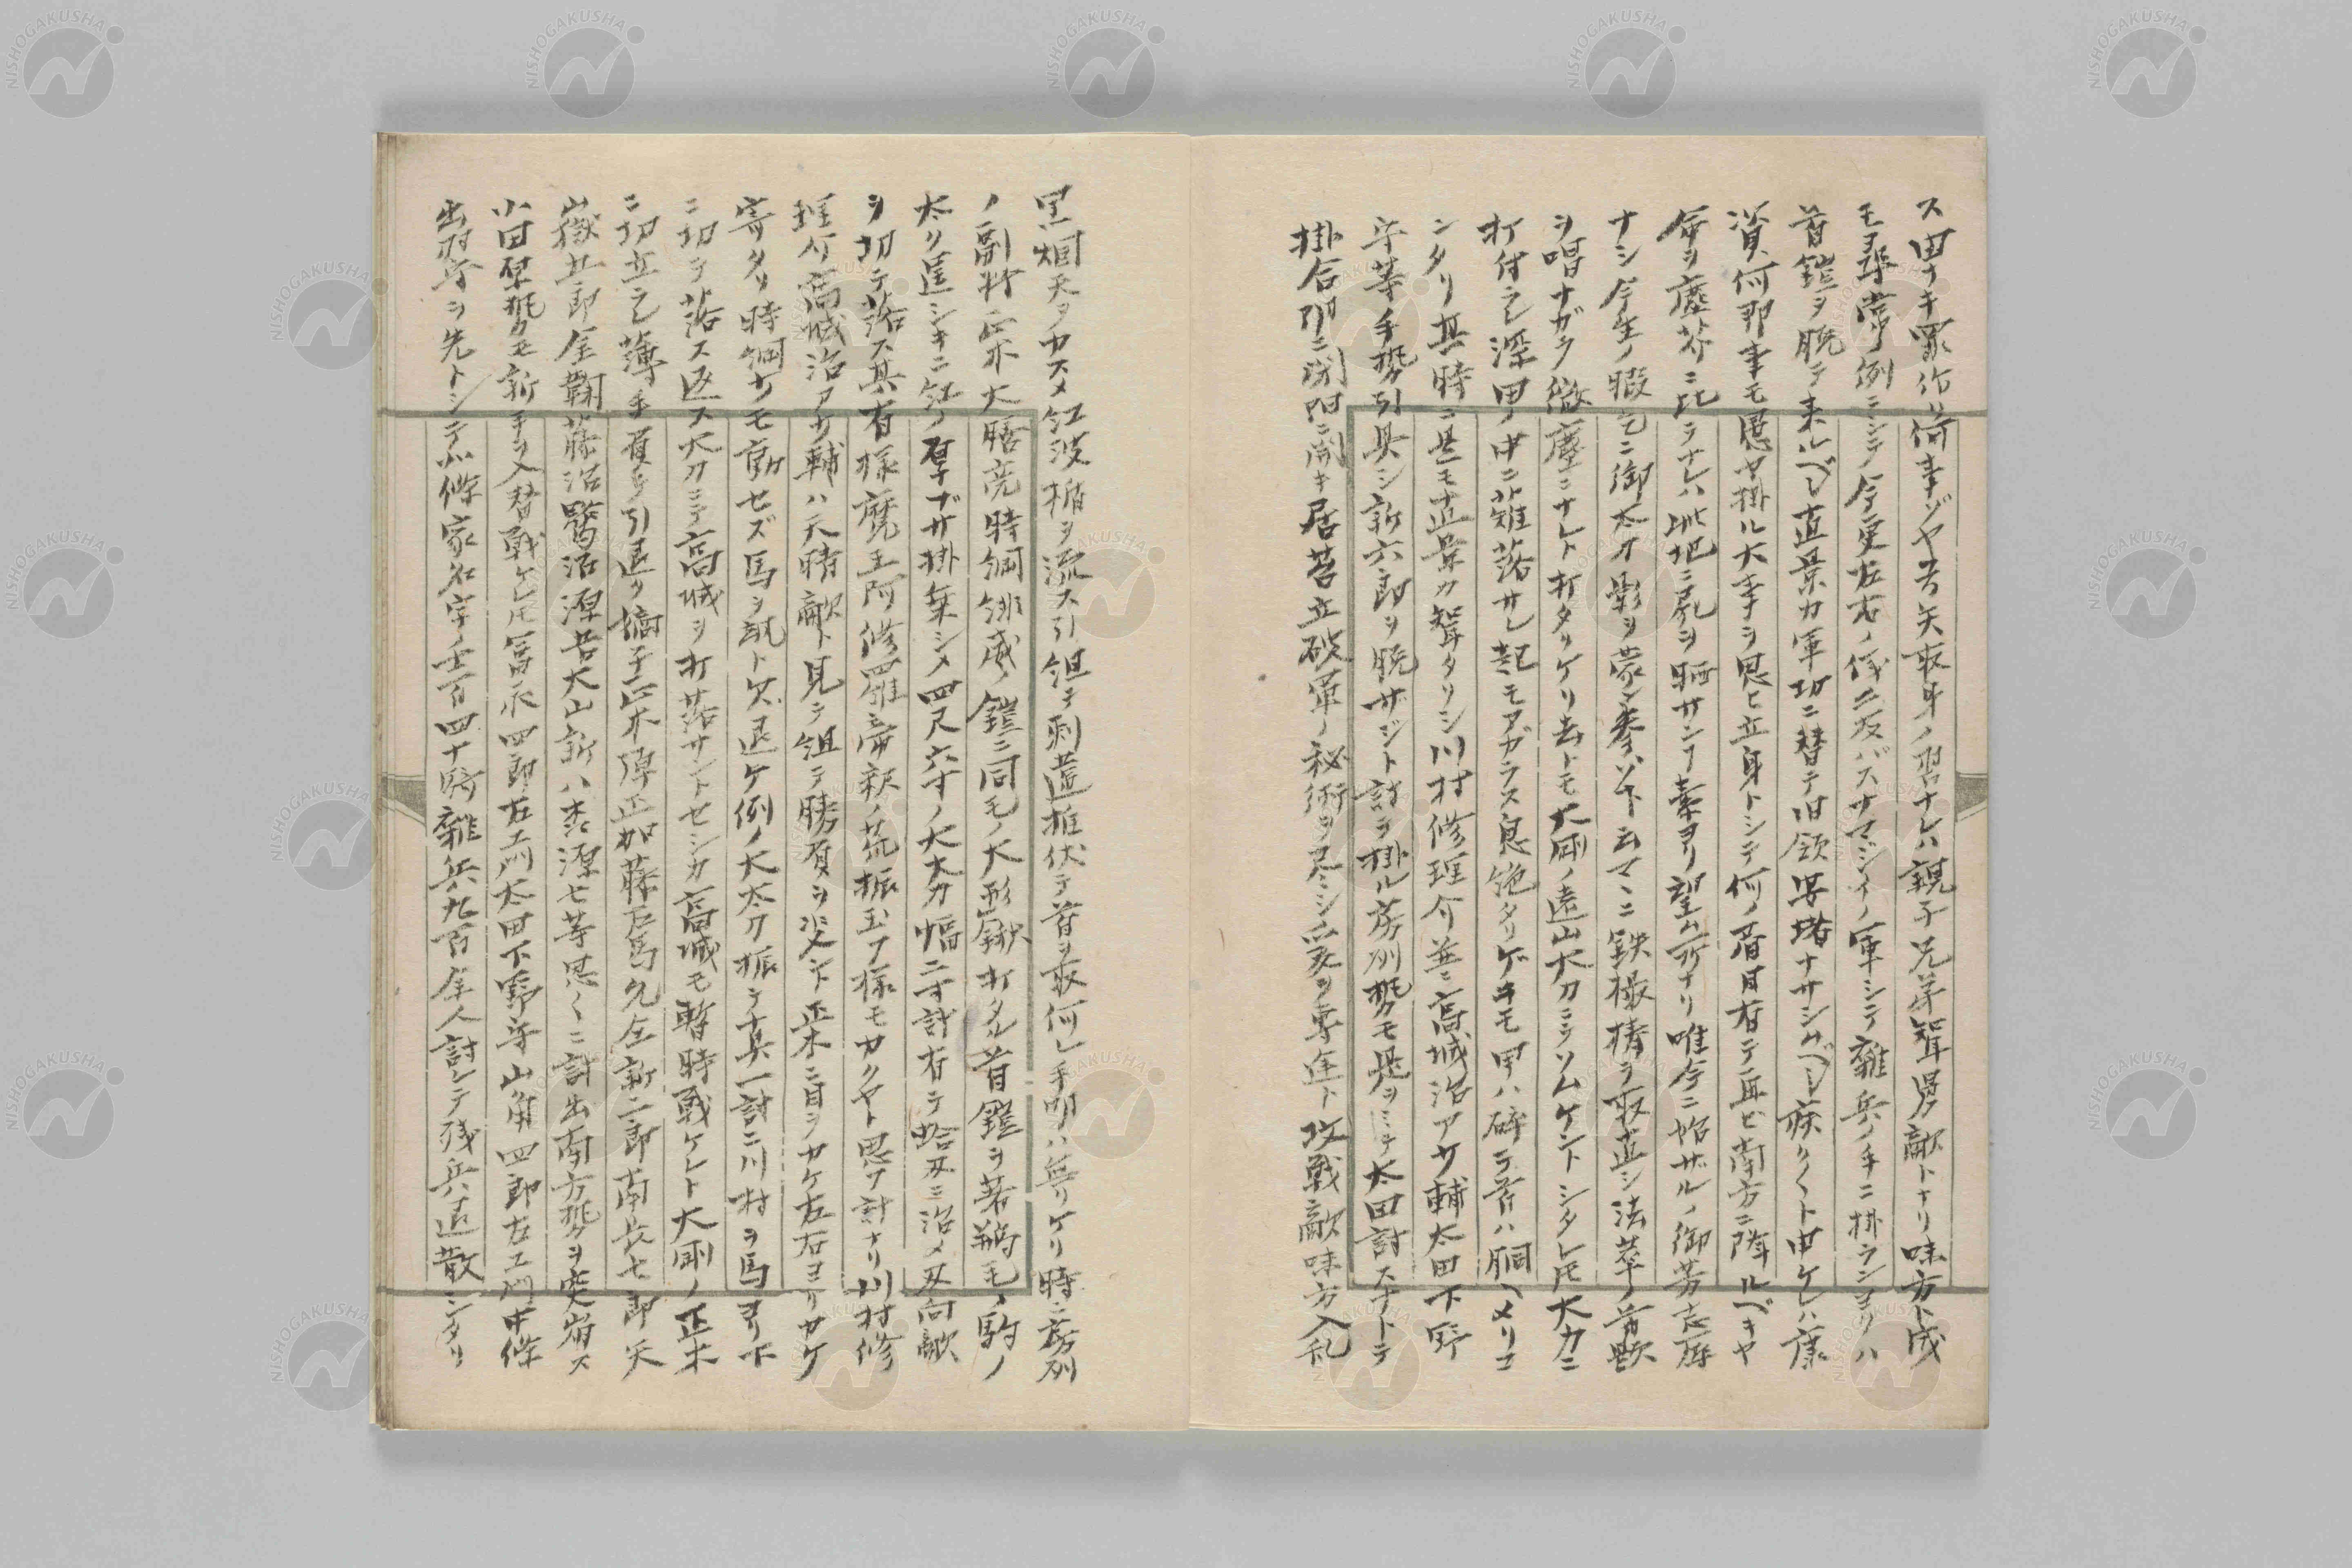 ス由ナキ軍作リ倚事ゾヤ去矢取身ノ習ナレハ親子兄弟聟舅敵トナリ味方ト成
モ尋常ノ例ニシテ今更左右ノ儀ニ及バスサマジイノ軍シテ雜兵ノ手ニ掛ランヨリハ
首鎧ヲ脱テ来ルベシ直景カ軍功ニ替テ旧領安堵ナサシムベシ疾〱ト申ケレハ康
資何那事モ愚ヤ掛ル大事ヲ思ヒ立身トシテ何ノ眉目有テ再ビ南方ニ降ルベキヤ
命ヲ塵芥ニ比テナレハ此地ニ屍ヲ晒サンフ素ヨリ望ム所ナリ唯今ニ始ザルノ御芳志辱
ナシ今生ノ暇乞ニ御太刀影ヲ蒙ン参ハント云マヽニ鉄撮棒ヲ取直シ法華ノ首題
ヲ唱ナガラ微塵ニナレト打タリケリ去トモ大剛ノ遠山大刀ニテソムケントシタレ𪜈大力ニ
打付ラレ深田ノ中ニ薙落サレ起モアガラス息絶タリゲキモ甲ハ碎テ首ハ胴ヘメリコ
ンタリ其時ニ是モ直景カ聟タリシ川村修理介並ニ高城治アサ輔太田下野
守等手勢引具シ新六郎ヲ脱ザジト討ヲ掛ル房州勢モ是ヲミテ太田討スナトテ
掛合開ニ閉閉ニ開キ居莟立破軍ノ秘術ヲ尽シ爰ヲ専途ト攻戦敵味方入乱
黒烟天ヲカスメ紅波楯ヲ流ス引組テ刺違推伏テ首ヲ取何レ手明ハ無リケリ時ニ房列
ノ副将正木大膳亮時綱緋威ノ鎧ニ同毛ノ大形鍬打タル首鎧ヲ著鵇毛ノ駒ノ
太リ逞シキニ紅ノ厚ブサ掛乗シメ四尺六寸ノ大太刀幅二寸計有テ蛤刄ニ治メ刄向敵
ヲ切テ落ス其有様魔王阿修羅帝釈ノ荒振玉フ様モカクヤト思フ計ナリ川村修
理介高城治アサ輔ハ天晴敵ト見テ組テ勝負ヲ決ント正木ニ目ヲカケ左右ヨリカケ
寄タリ時綱サノモ動セズ馬ヲ颯ト欠退ケ例ノ大太刀振テ真一討ニ川村ヲ馬ヨリ下
ニ切ヲ落ス返ス大刀ニテ高城ヲ打落サントセシカ高城モ暫時戦ケレト大剛ノ正木
ニ切立ラレ薄手負ヲ引退ク嫡子正木弾正加藤左馬允金新二郎南長七郎矢
嶽廿郎金鞠藤治鷲沼源吾大山新八李源七等思〱ニ討出南方勢ヲ突崩ス
小田早勢モ新手ヲ入替戦ケレ𪜈冨永四郎左エ門太田下野守山角四郎左エ門中條
出羽守ヲ先トシテ北條家名字ノ士百四十騎雜兵九百余人討レテ残兵退散シタリ